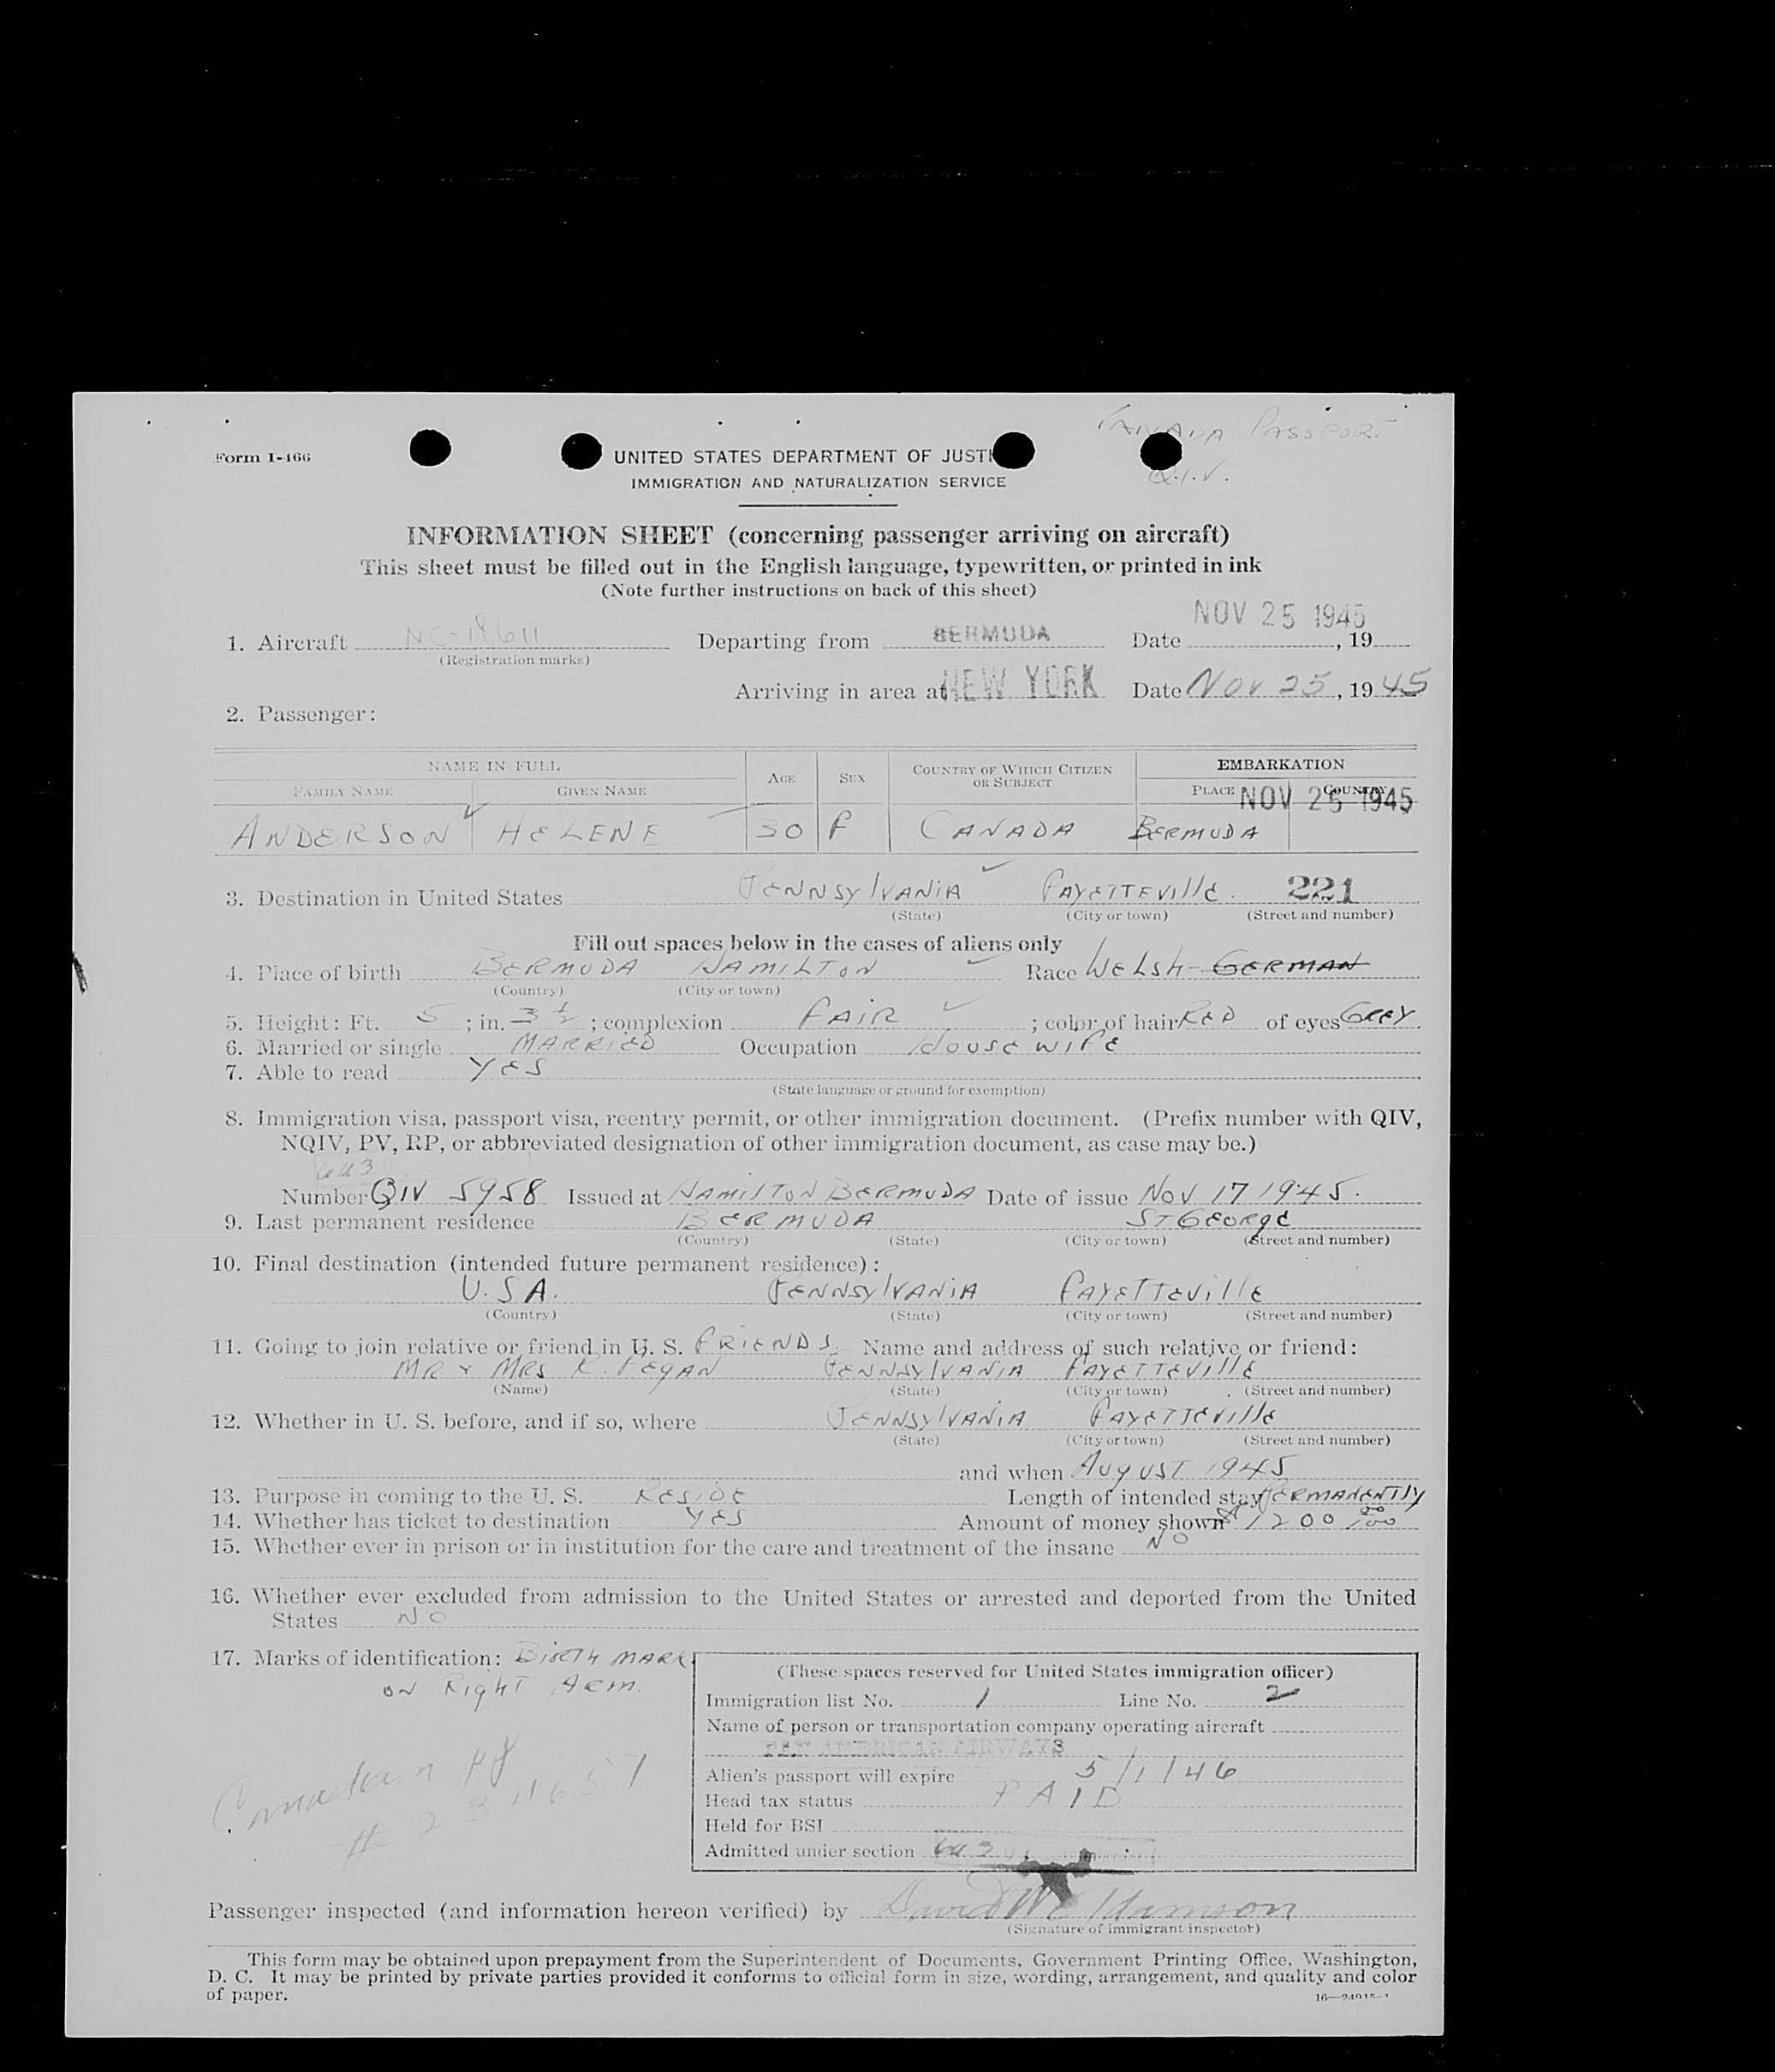 CANADA PASSPORT
Form I-466
UNITED STATES DEPARTMENT OF JUSTI
Q.I.V.
IMMIGRATION AND NATURALIZATION SERVICE
INFORMATION SHEET (concerning passenger arriving on aircraft)
This sheet must be filled out in the English language, typewritten, or printed in ink
(Note further instructions on back of this sheet)
NOV 25 1945
1. Aircraft NC-18611 Departing from BERMUDA Date , 19
(Registration marks)
Arriving in area at NEW YORK Date NOV 25, 19 45
2. Passenger:
NAME IN FULL AGE SEX COUNTRY OF WHICH CITIZEN OR SUBJECT EMBARKATION
FAMILY NAME GIVEN NAME PLACE COUNTRY
NOV 25 1945
ANDERSON HELENE 30 F CANADA BERMUDA
3. Destination in United States PENNSYLVANIA FAYETTEVILLE. 221
(State) (City or town) (Street and number)
Fill out spaces below in the cases of aliens only
4. Place of birth BERMUDA HAMILTON Race WELSH-GERMAN
(Country) (City or town)
5. Height: Ft. 5 ; in. 3 ½ ; complexion FAIR ; color of hair RED of eyes GREY
6. Married or single MARRIED Occupation HOUSEWIFE
7. Able to read YES
(State language or ground for exemption)
8. Immigration visa, passport visa, reentry permit, or other immigration document. (Prefix number with QIV,
NQIV, PV, RP, or abbreviated designation of other immigration document, as case may be.)
Number QIV 5958 Issued at HAMILTON BERMUDA Date of issue NOV 17 1945.
9. Last permanent residence BERMUDA ST GEORGE
(Country) (State) (City or town) (Street and number)
10. Final destination (intended future permanent residence):
U.S.A. PENNSYLVANIA FAYETTEVILLE
(Country) (State) (City or town) (Street and number)
11. Going to join relative or friend in U. S. FRIENDS. Name and address of such relative or friend:
MR & MRS R. FEGAN PENNSYLVANIA FAYETTEVILLE
(Name) (State) (City or town) (Street and number)
12. Whether in U. S. before, and if so, where PENNSYLVANIA FAYETTEVILLE
(State) (City or town) (Street and number)
and when AUGUST 1945
13. Purpose in coming to the U. S. RESIDE Length of intended stay PERMANENTLY
14. Whether has ticket to destination YES Amount of money shown $1200 00/100
15. Whether ever in prison or in institution for the care and treatment of the insane NO
16. Whether ever excluded from admission to the United States or arrested and deported from the United
States NO
17. Marks of identification: BIRTH MARK
ON RIGHT ARM.
(These spaces reserved for United States immigration officer)
Immigration list No. 1 Line No. 2
Name of person or transportation company operating aircraft
PAN AMERICAN AIRWAYS
Alien's passport will expire 5/1/46
Head tax status PAID
Held for BSI
Admitted under section
Canadian pp
# 234651
Passenger inspected (and information hereon verified) by
(Signature of immigrant inspector)
This form may be obtained upon prepayment from the Superintendent of Documents, Government Printing Office, Washington,
D. C. It may be printed by private parties provided it conforms to official form in size, wording, arrangement, and quality and color
of paper.